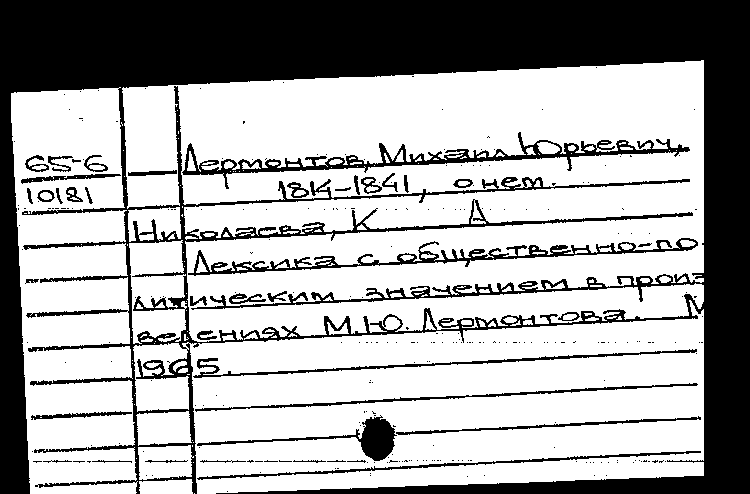 65-6 Лермонтов, Михаил Юрьевич,
10181 1814-1841, о нем.
Николаева, К А
Лексика с общественно-по-
литическим значением в произ
ведениях М.Ю. Лермонтова. М
1965.